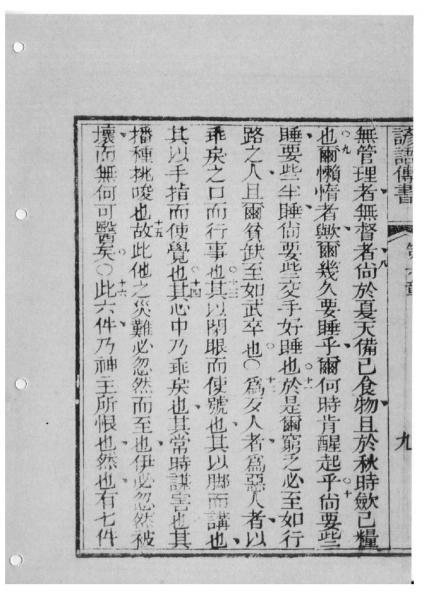 諺語傳書 第六章 九
無管理者無督者尙於夏天備己食物且於秋時斂己糧
也○九爾懶惰者歟爾幾久要睡乎爾何時肯醒起乎○十尙要些
睡要些坐睡尙要些交手好睡也○十一於是爾窮乏必至如行
路之人且爾貧缺至如武卒也○十二爲歹人者爲惡人者以
乖戾之口而行事也○十三其以閉眼而使號也其以脚而講也
其以手指而使覺也○十四其心中乃乖戾也其常時謀害也其
播種挑唆也○十五故此他之災難必忽然而至也伊必忽然被
壞而無何可醫矣○十六此六件乃神主所恨也然也有七件